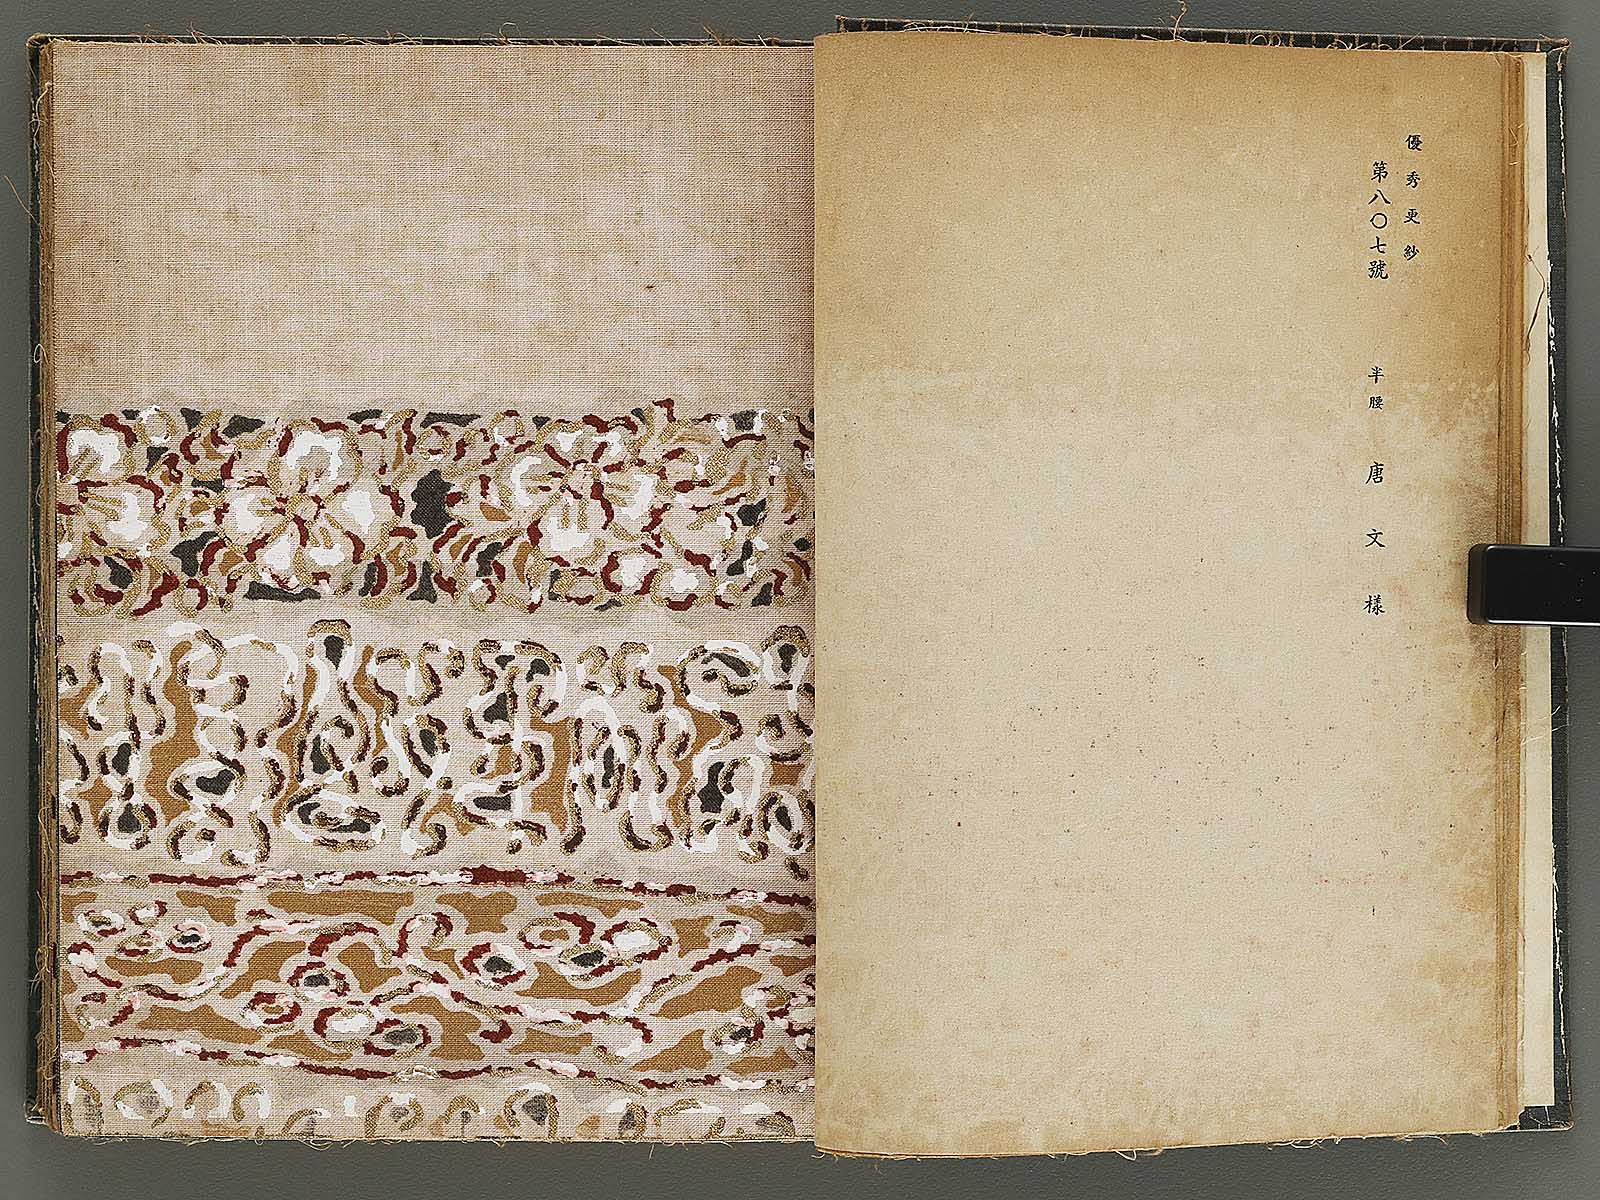 優秀更紗
第八〇七號 半腰 唐文樣